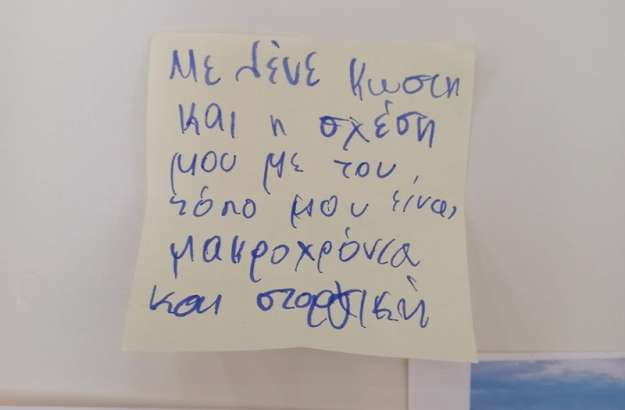 Με λένε Κωστή
και η σχέση
μου με τον
τόπο μου είναι
μακροχρόνια
και στοργική